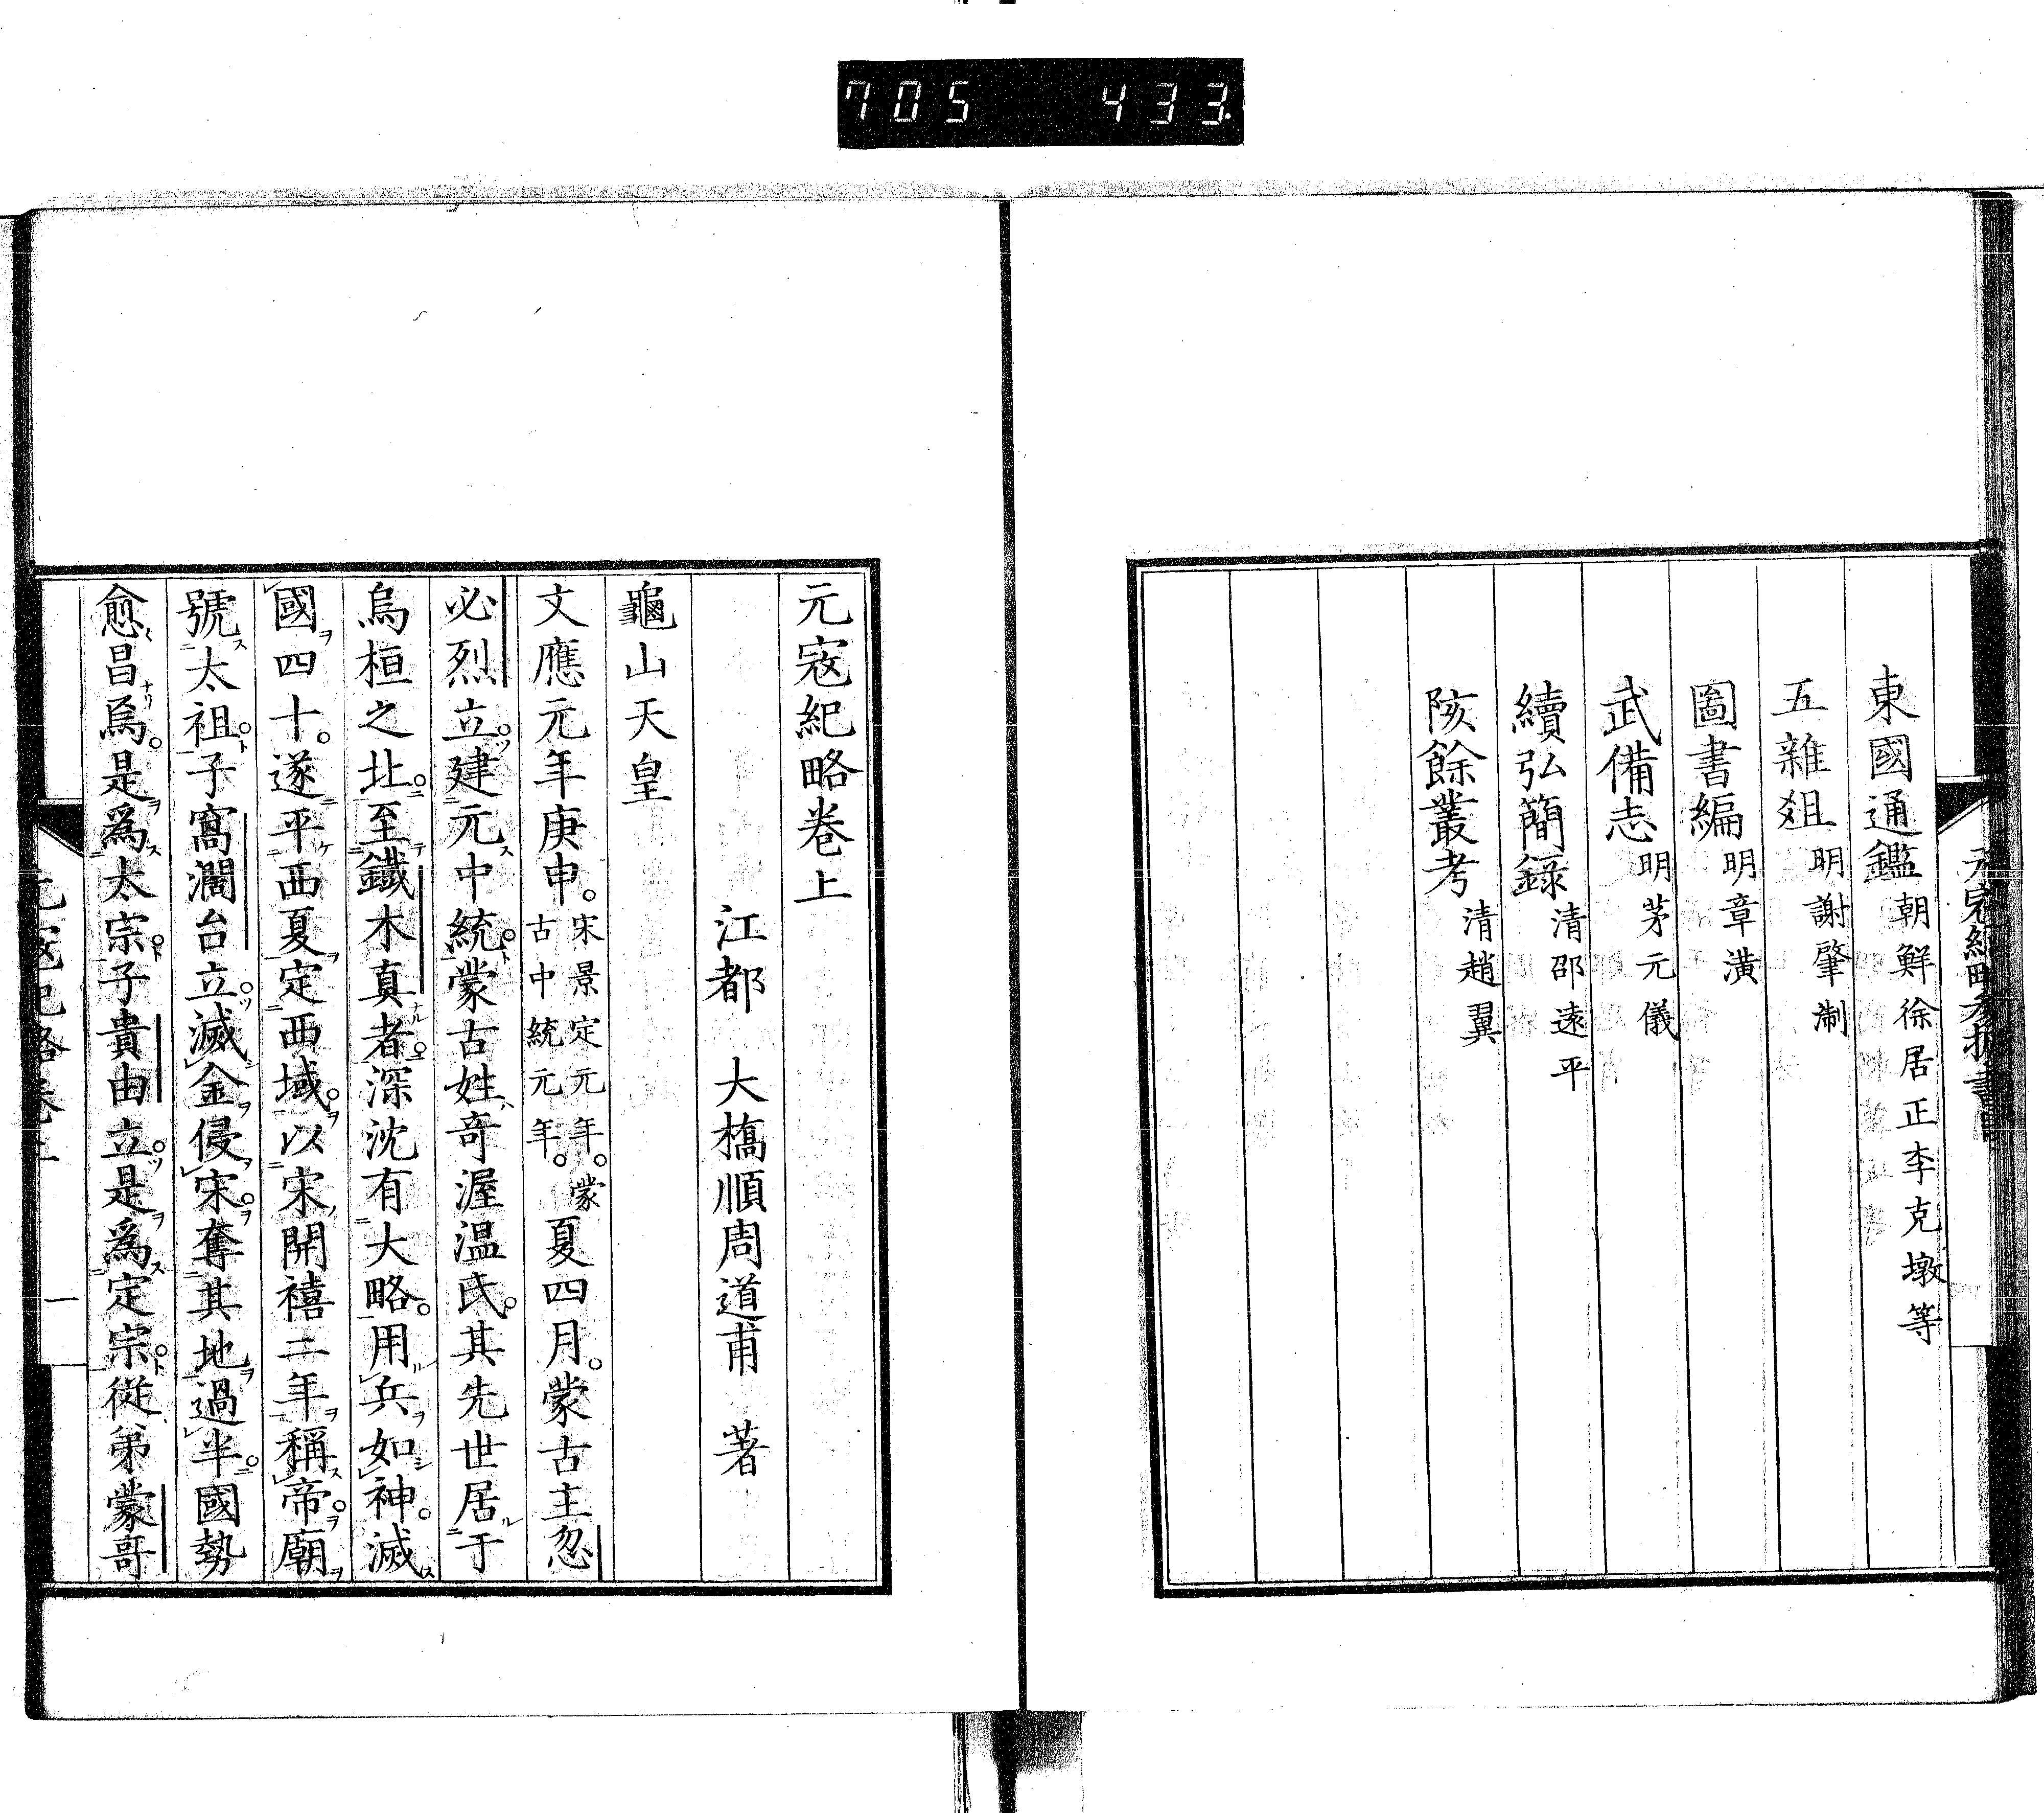 705 433
東國通鑑 朝鮮徐居正李克墩等
五雜爼 明謝肇淛
圖書編 明章潢
武備志 明茅元儀
續弘簡錄 清邵遠平
陔餘叢考 清趙翼
元寇紀略卷上
江都 大橋順周道甫 著
龜山天皇
文應元年庚申。宋景定元年。蒙古中統元年。夏四月。蒙古主忽
必烈立。建元中統。蒙古姓奇渥温氏。其先世居于
烏桓之北。至鐵木真者。深沈有大略。用兵如神。滅
國四十。遂平西夏定西域。以宋開禧二年稱帝。廟
號太祖。子窩濶台立。滅金侵宋。奪其地過半。國勢
愈昌焉。是爲太宗。子貴由立。是爲定宗。從弟蒙哥
一